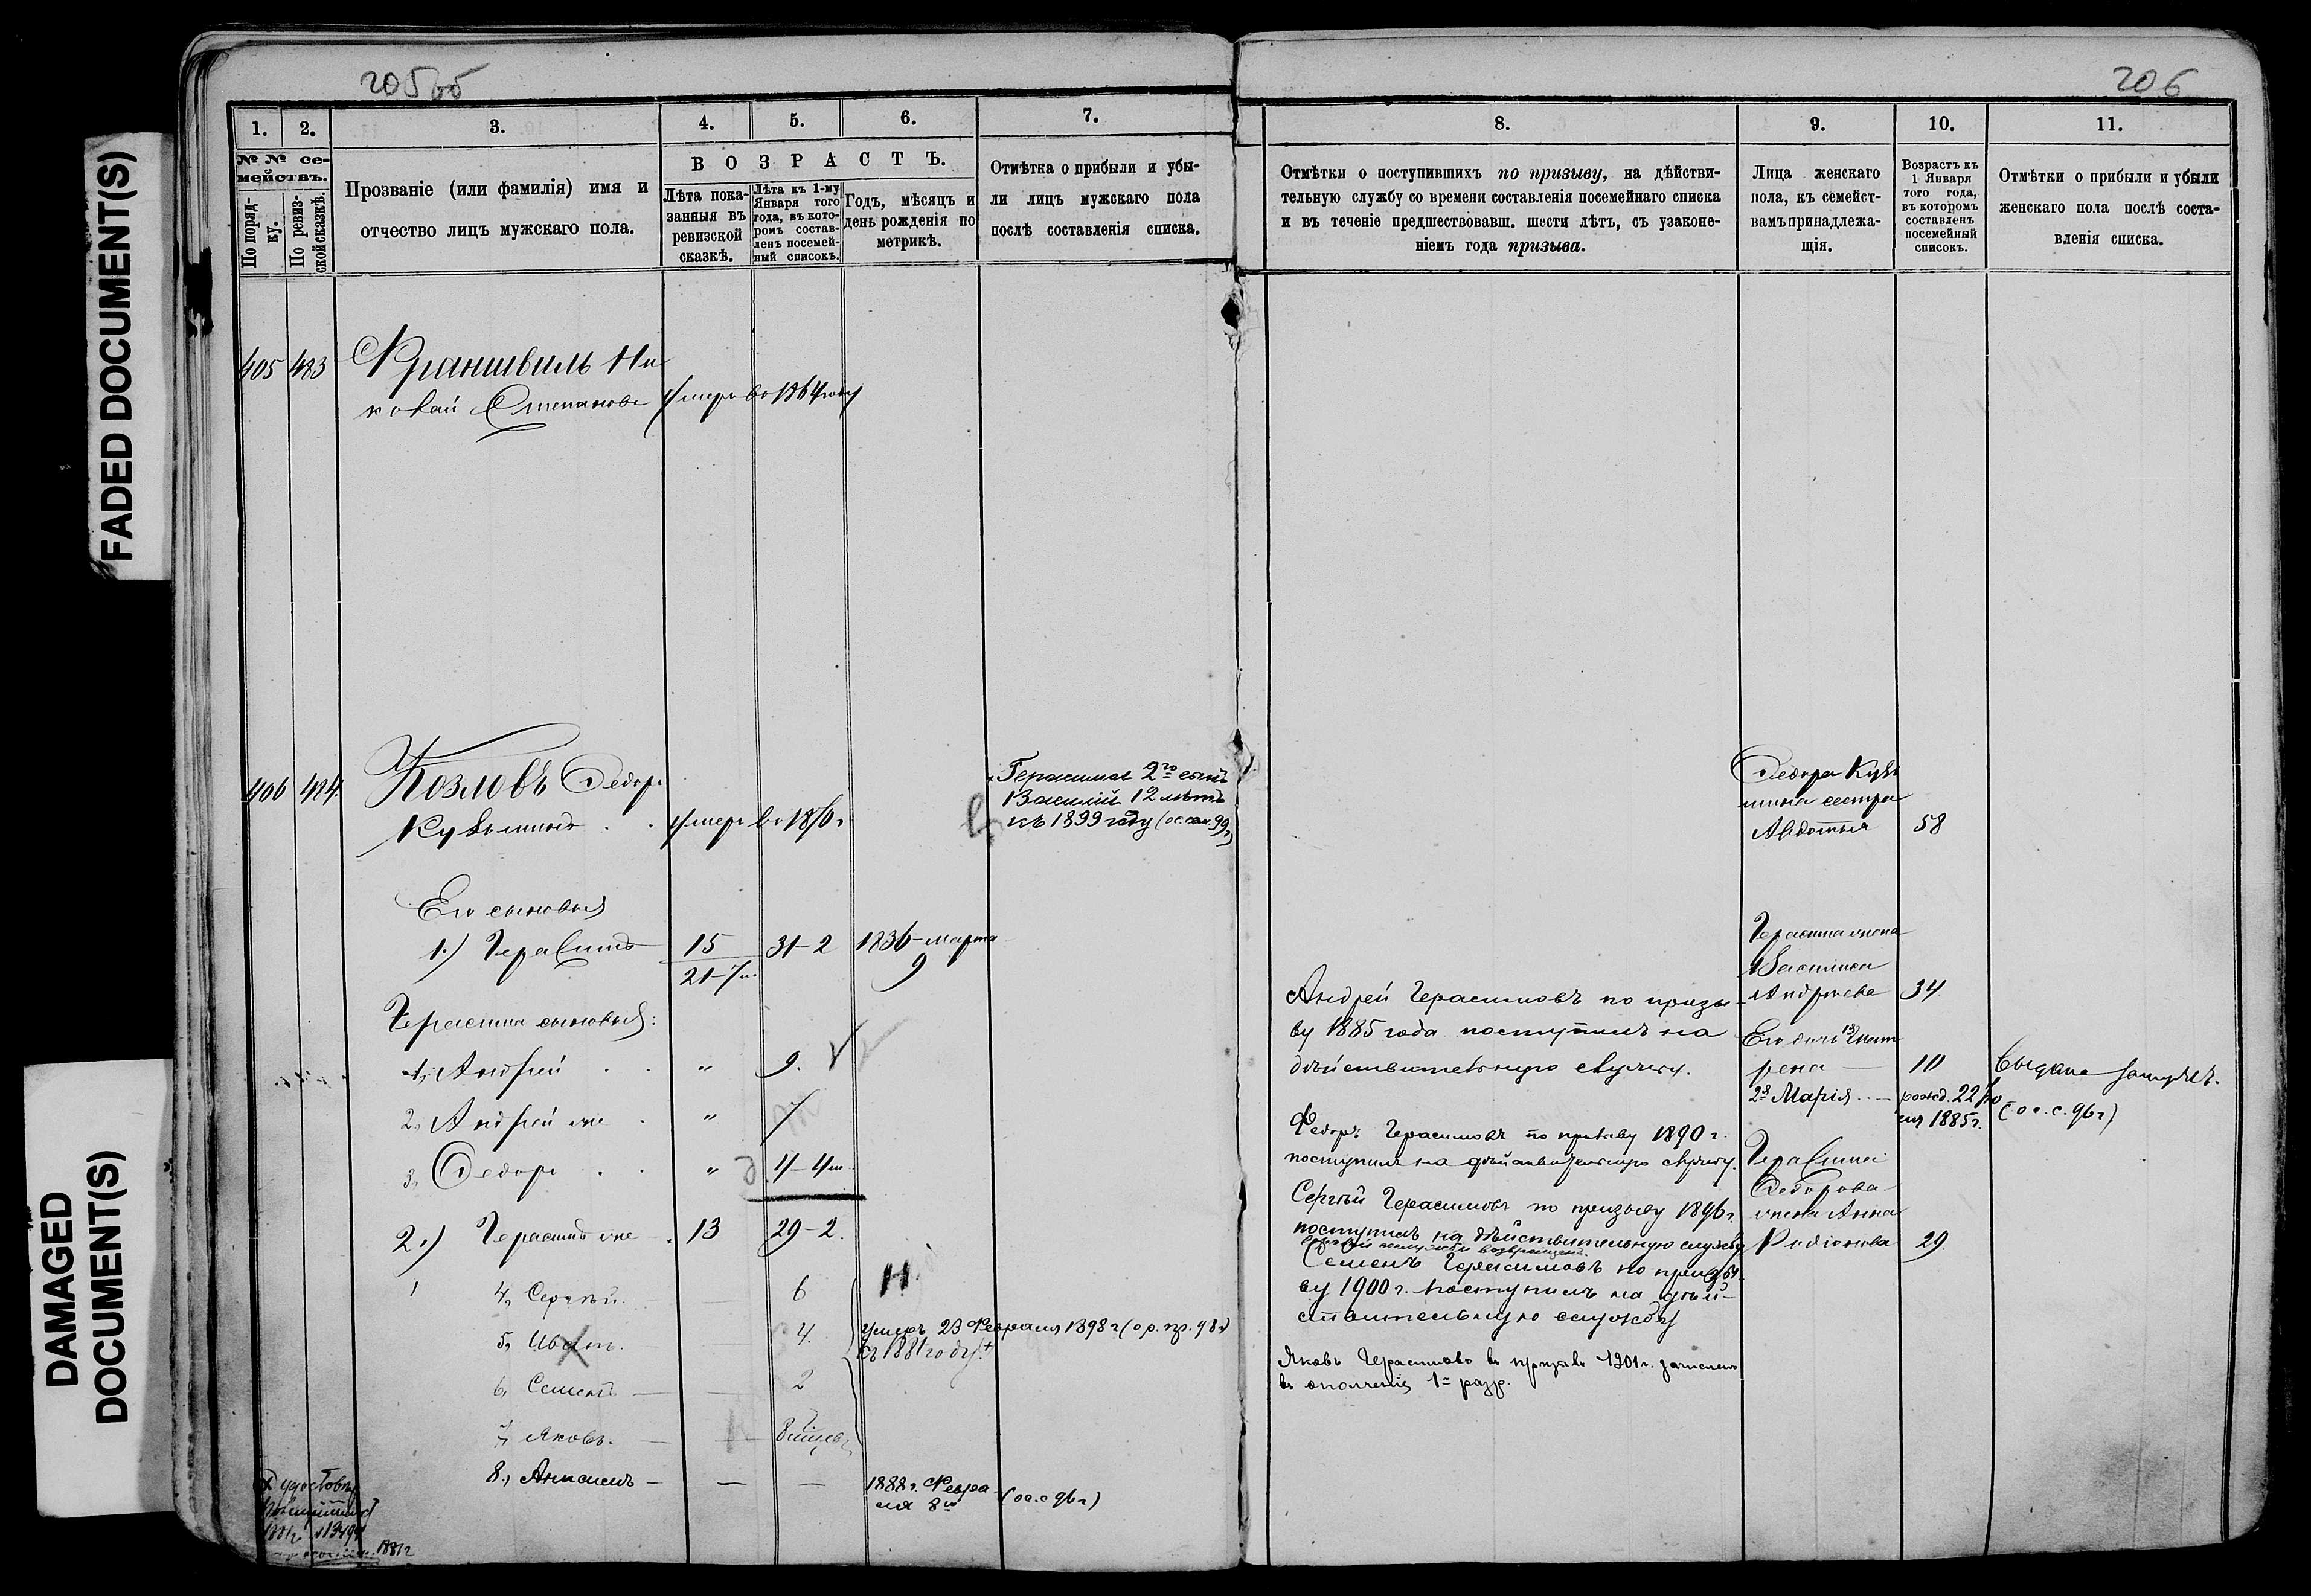 FADED DOCUMENT(S)
DAMAGED
DOCUMENT(S)
205 об
1.
2.
3.
4.
5.
6.
7.
№ № се-
мействъ.
По поряд-
ку.
По ревиз-
ской сказкѣ.
Прозваніе (или фамилія) имя и
отчество лицъ мужскаго пола.
ВОЗРАСТЪ.
Лѣта пока-
занныя въ
ревизской
сказкѣ.
Лѣта къ 1-му
Января того
года, въ кото-
ромъ состав-
ленъ посемей-
ный списокъ.
Годъ, мѣсяцъ и
день рожденія по
метрикѣ.
Отмѣтка о прибыли и убы-
ли лицъ мужскаго пола
послѣ составленія списка.
405 483
Ни
колай Степановъ умеръ въ 1864 году
406 484
Козловъ Федоръ
Кузьминъ умеръ въ
Герасима 2го сынъ
Василій 12 лѣтъ
къ 1899 году
Его сыновья
1.) Герасимъ 15 31-2 1836 марта
9
21-7м.
Герасима сыновья:
1, Андрей " 9.
2, Андрей же " 7
3, Федоръ " 4-4м
2.) Герасимъ же 13 29-2.
4, Сергѣй 6 Н
5, Иванъ. 4. умеръ 23 Февраля 1898 г.
къ 1881 году
6, Семенъ 2
7, Яковъ.
8, Анисимъ — — — 1888 г. Февра
ля 8го (ос. с 96 г)
1881 г
206
8.
9.
10.
11.
Отмѣтки о поступившихъ по призыву, на дѣйстви-
тельную службу со времени составленія посемейнаго списка
и въ теченіе предшествовавш. шести лѣтъ, съ узаконе-
ніемъ года призыва.
Лица женскаго
пола, къ семейст-
вамъ принадлежа-
щія.
Возрастъ къ
1 Января
того года,
въ которомъ
составленъ
посемейный
списокъ.
Отмѣтки о прибыли и убыли
женскаго пола послѣ соста-
вленія списка.
Федора Кузь
мина сестра
Авдотья 58
Герасима жена
Василиса
Андреева 34
Его дочь
10 выдана замужъ.
2я Марія рожд. 22
1885 г. (ос. с. 96 г)
Герасима
Федорова
жена Анна
Родіонова 29
Андрей Герасимовъ по призы-
ву 1885 года поступилъ на
дѣйствительную службу.
Федоръ Герасимовъ по призыву 1890 г.
поступилъ на дѣйствительную службу.
Сергѣй Герасимовъ по призыву 1896 г.
поступилъ на дѣйствительную службу
Семенъ Герасимовъ по призы-
ву 1900 г. поступилъ на дѣй-
ствительную службу
Яковъ Герасимовъ въ призывъ 1901 г. зачисленъ
въ ополченіе 1= разр.